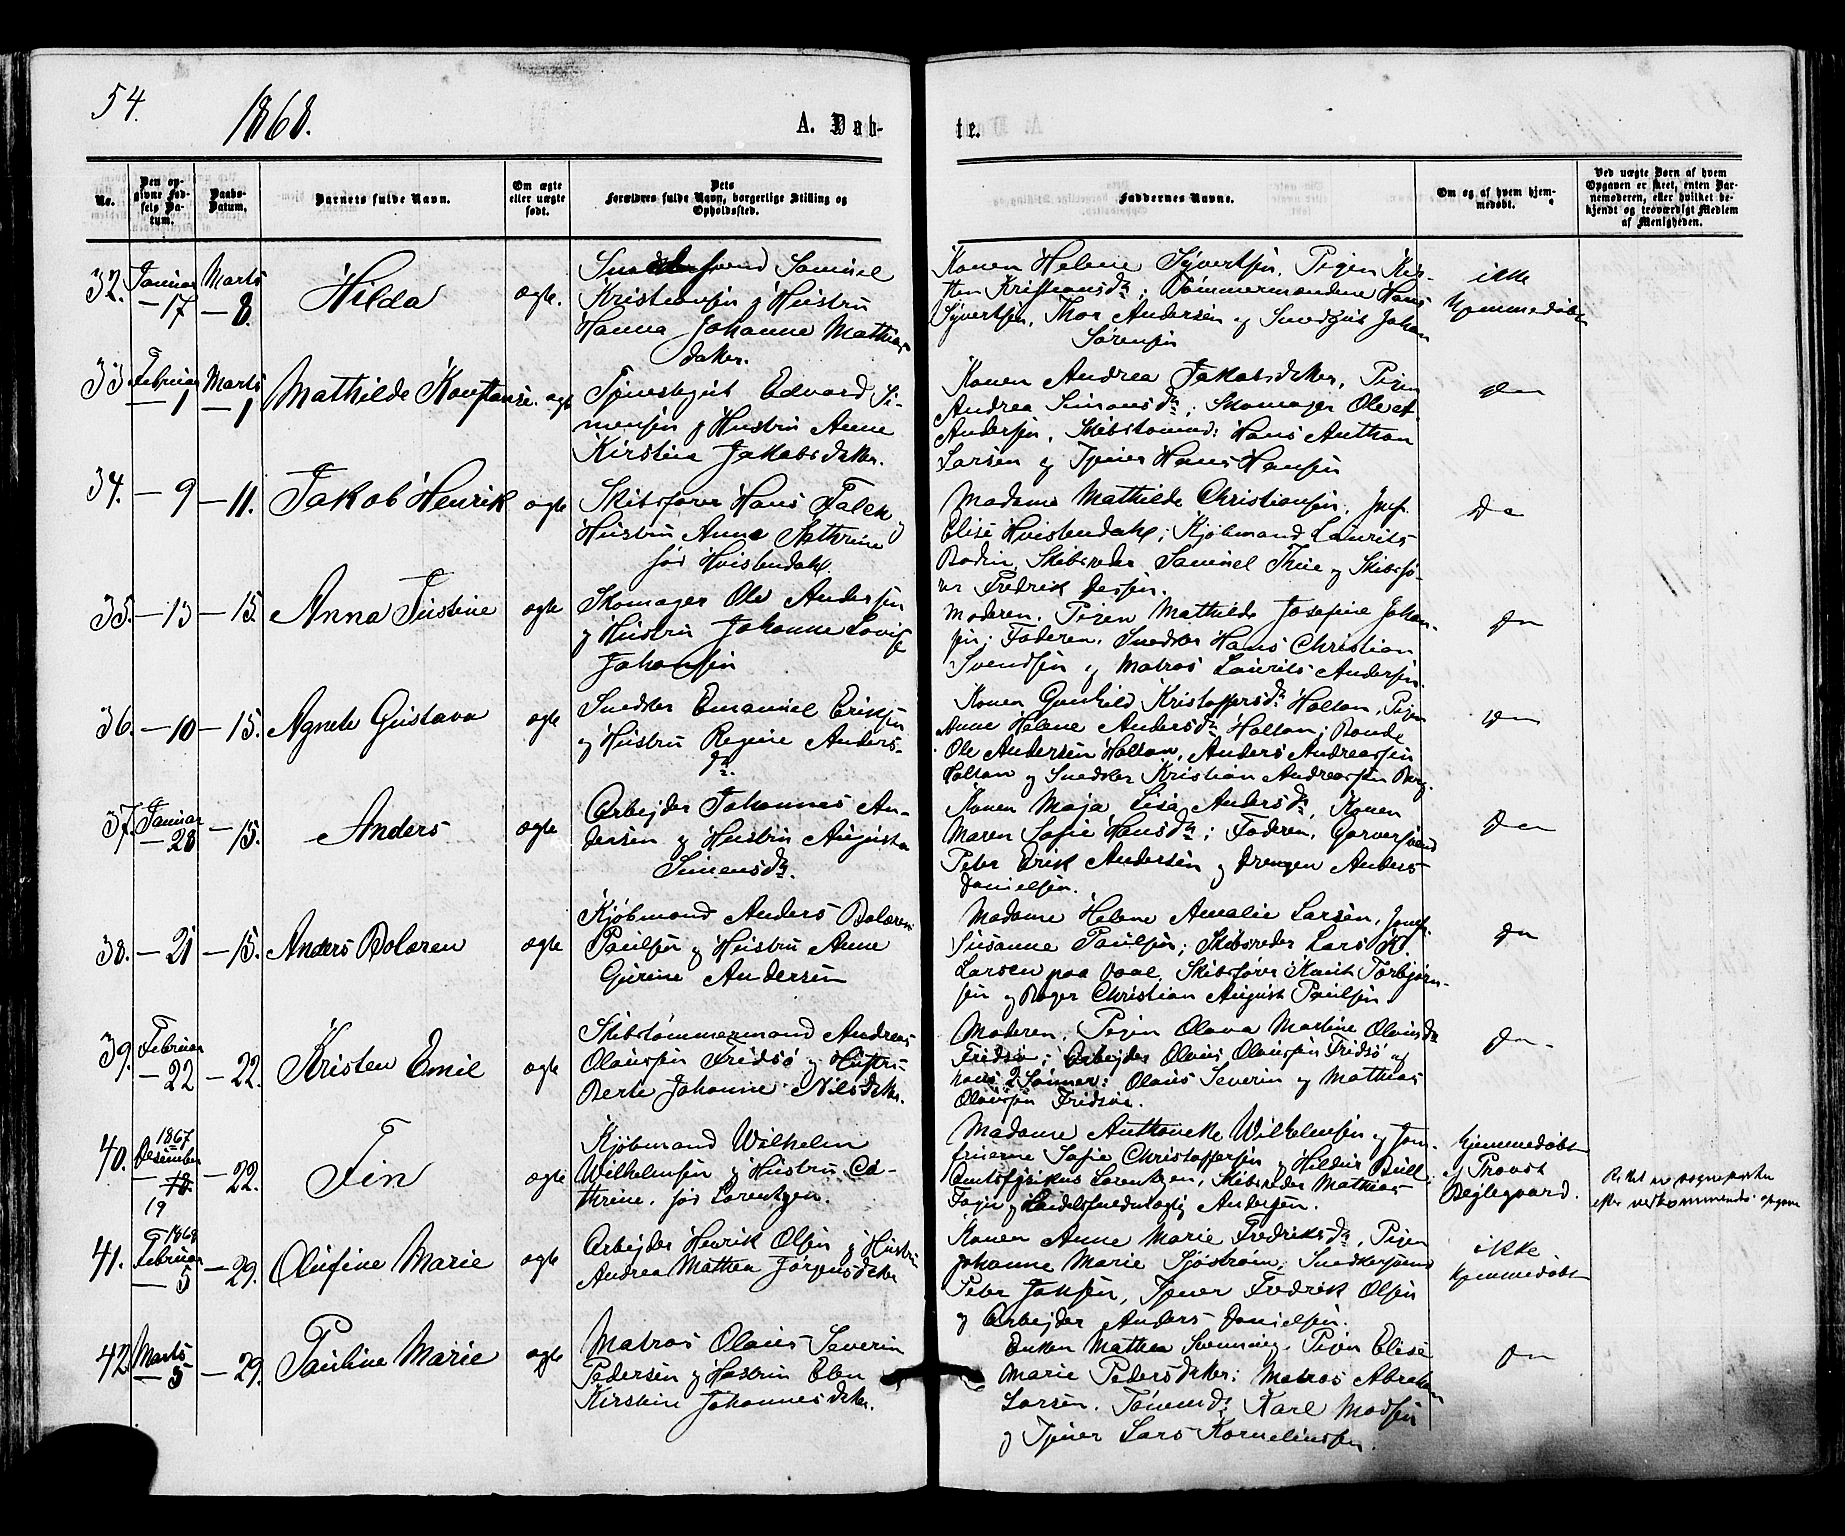 54.
1868.
A. Døb-
te.
No.
Den op-
givne Fød-
sels Da-
tum.
Daabs-
Datum.
Barnets fulde Navn.
Om ægte
eller uægte
født.
Dets
Forældres fulde Navn, borgerlige Stilling og
Opholdssted.
Faddernes Navne.
Om og af hvem hjem-
medøbt.
Ved uægte Børn af hvem
Opgaven er skeet, enten Bar-
nemoderen, eller hvilket be-
kjendt og troværdigt Medlem
af Menigheden.
32. Januar — 17 Marts — 8. Hilda ægte.
Samuel
Kristiansen g Hustru
Hanna Johanne Mathias
dater.
Konen Helene Syvertsen, Pigen Kir-
sten Kristiansdr; Tømmermændene Hans
Syvertsen, Thor Andersen og Snedkgut Johan
Sørensen
ikke
hjemmedøbt
33. Februar — 1 Marts — 1 Mathilde Konstanse. ægte
Tjenestegut Edvard Si-
mensen g Hustru Anne
Kirstine Jakobsdater.
Konen Andrea Jakobsdater, Pigen
Andrea Simonsdr; Skomager Ole
Andersen, Skibstømmd: Hans Anthon
Larsen og Tjener Hans Hansen
Do
34. — 9 — 11. Jakob Henrik ægte
Skibsfører Hans Falck g
Hustru Anne Kathrine
fød Hvistendahl.
Madame Mathilde Christiansen, Jmf.
Elise Hvistendahl; Kjøbmand Laurits
Bodin, Skibsreder Samuel Thue og Skibsfø-
rer Fredrik Jessen.
Do
35. — 13 — 15. Anna Justine ægte
Skomager Ole Andersen
g Hustru Johanne Lovise
Johansen
Moderen, Pigen Mathilde Josefine Johan-
sen; Faderen, Snedker Hans Christian
Svendsen og Matros Laurits Andersen.
Do
36. — 10 — 15. Agnete Gustava ægte
Snedker Emanuel Eriksen
g Hustru Regine Anders-
dr.
Konen Gunhild Kristoffersdr Holtan, Pigen
Anne Helene Andersdr Holtan; Bonde
Ole Andersen Holtan, Anders Andreassen
Holtan og Snedker Kristian Andreassen Berg.
Do
37. Januar — 28 — 15. Anders ægte
Arbejder Johannes An-
dersen g Hustru Augusta
Simensdr.
Konen Maja Lisa Andersdr, Konen
Maren Sofie Hansdr; Faderen, Garversvend
Peter Erik Andersen og Drengen Anders
Danielsen.
Do
38. — 21 — 15. Anders Bolæren ægte
Kjøbmand Anders Bolæren
Paulsen g Hustru Anne
Gurine Andersen
Madame Helene Amalie Larsen, Jomf.
Susanne Paulsen; Skibsreder Lars K.
Larsen paa Vaal, Skibsfører Knut Torbjørn-
sen og Bager Christian August Paulsen.
Do
39. Februar — 22 — 22. Kristen Emil ægte
Skibstømmermand Andreas
Olaussen Fridsø g Hustru
Berte Johanne Nilsdater.
Moderen, Pigen Olava Martine Olausdr
Fridsø; Arbejder Olaus Olaussen Fridsø og
hans 2 Sønner: Olaus Severin og Mathias
Olaussen Fridsøe.
Do
40. 1867 Desember — 18. 19 — 22. Fin ægte
Kjøbmand Wilhelm
Wilhelmsen g Hustru Ca-
thrine, fød Lorentzen.
Madame Anthonette Wilhelmsen og Jom-
fruerne Sofie Christoffersen og Hildur Bull
Amtsfysikus Lorentzen, Skibsreder Mathias
Føyn og Handelsfuldmægtig Andersen.
hjemmedøbt
af Provst
Bejlegaard.
Rettet av sogneprest
efter vedkommendes opgave
41. 1868 Februar — 5 — 29. Olufine Marie ægte
Arbejder Henrik Olsen g Hustru
Andrea Mathea Jørgensdater
Konen Anne Marie Fredriksdr, Pigen
Johanne Marie Sjøstrøm; Snedkersvend
Peter Jansen, Tjener Fredrik Olsen
og Arbejder Anders Danielsen.
ikke
hjemmedøbt
42 Marts — 5 — 29. Pauline Marie ægte
Matros Olaus Severin
Pedersen g Hustru Elen
Kirstine Johannesdater.
Enken Mathea Svenning, Pigen Elise
Marie Pedersdater; Matros Abraham
Larsen, Tømmd: Karl Madsen
og Tjener Lars Korneliussen.
Do